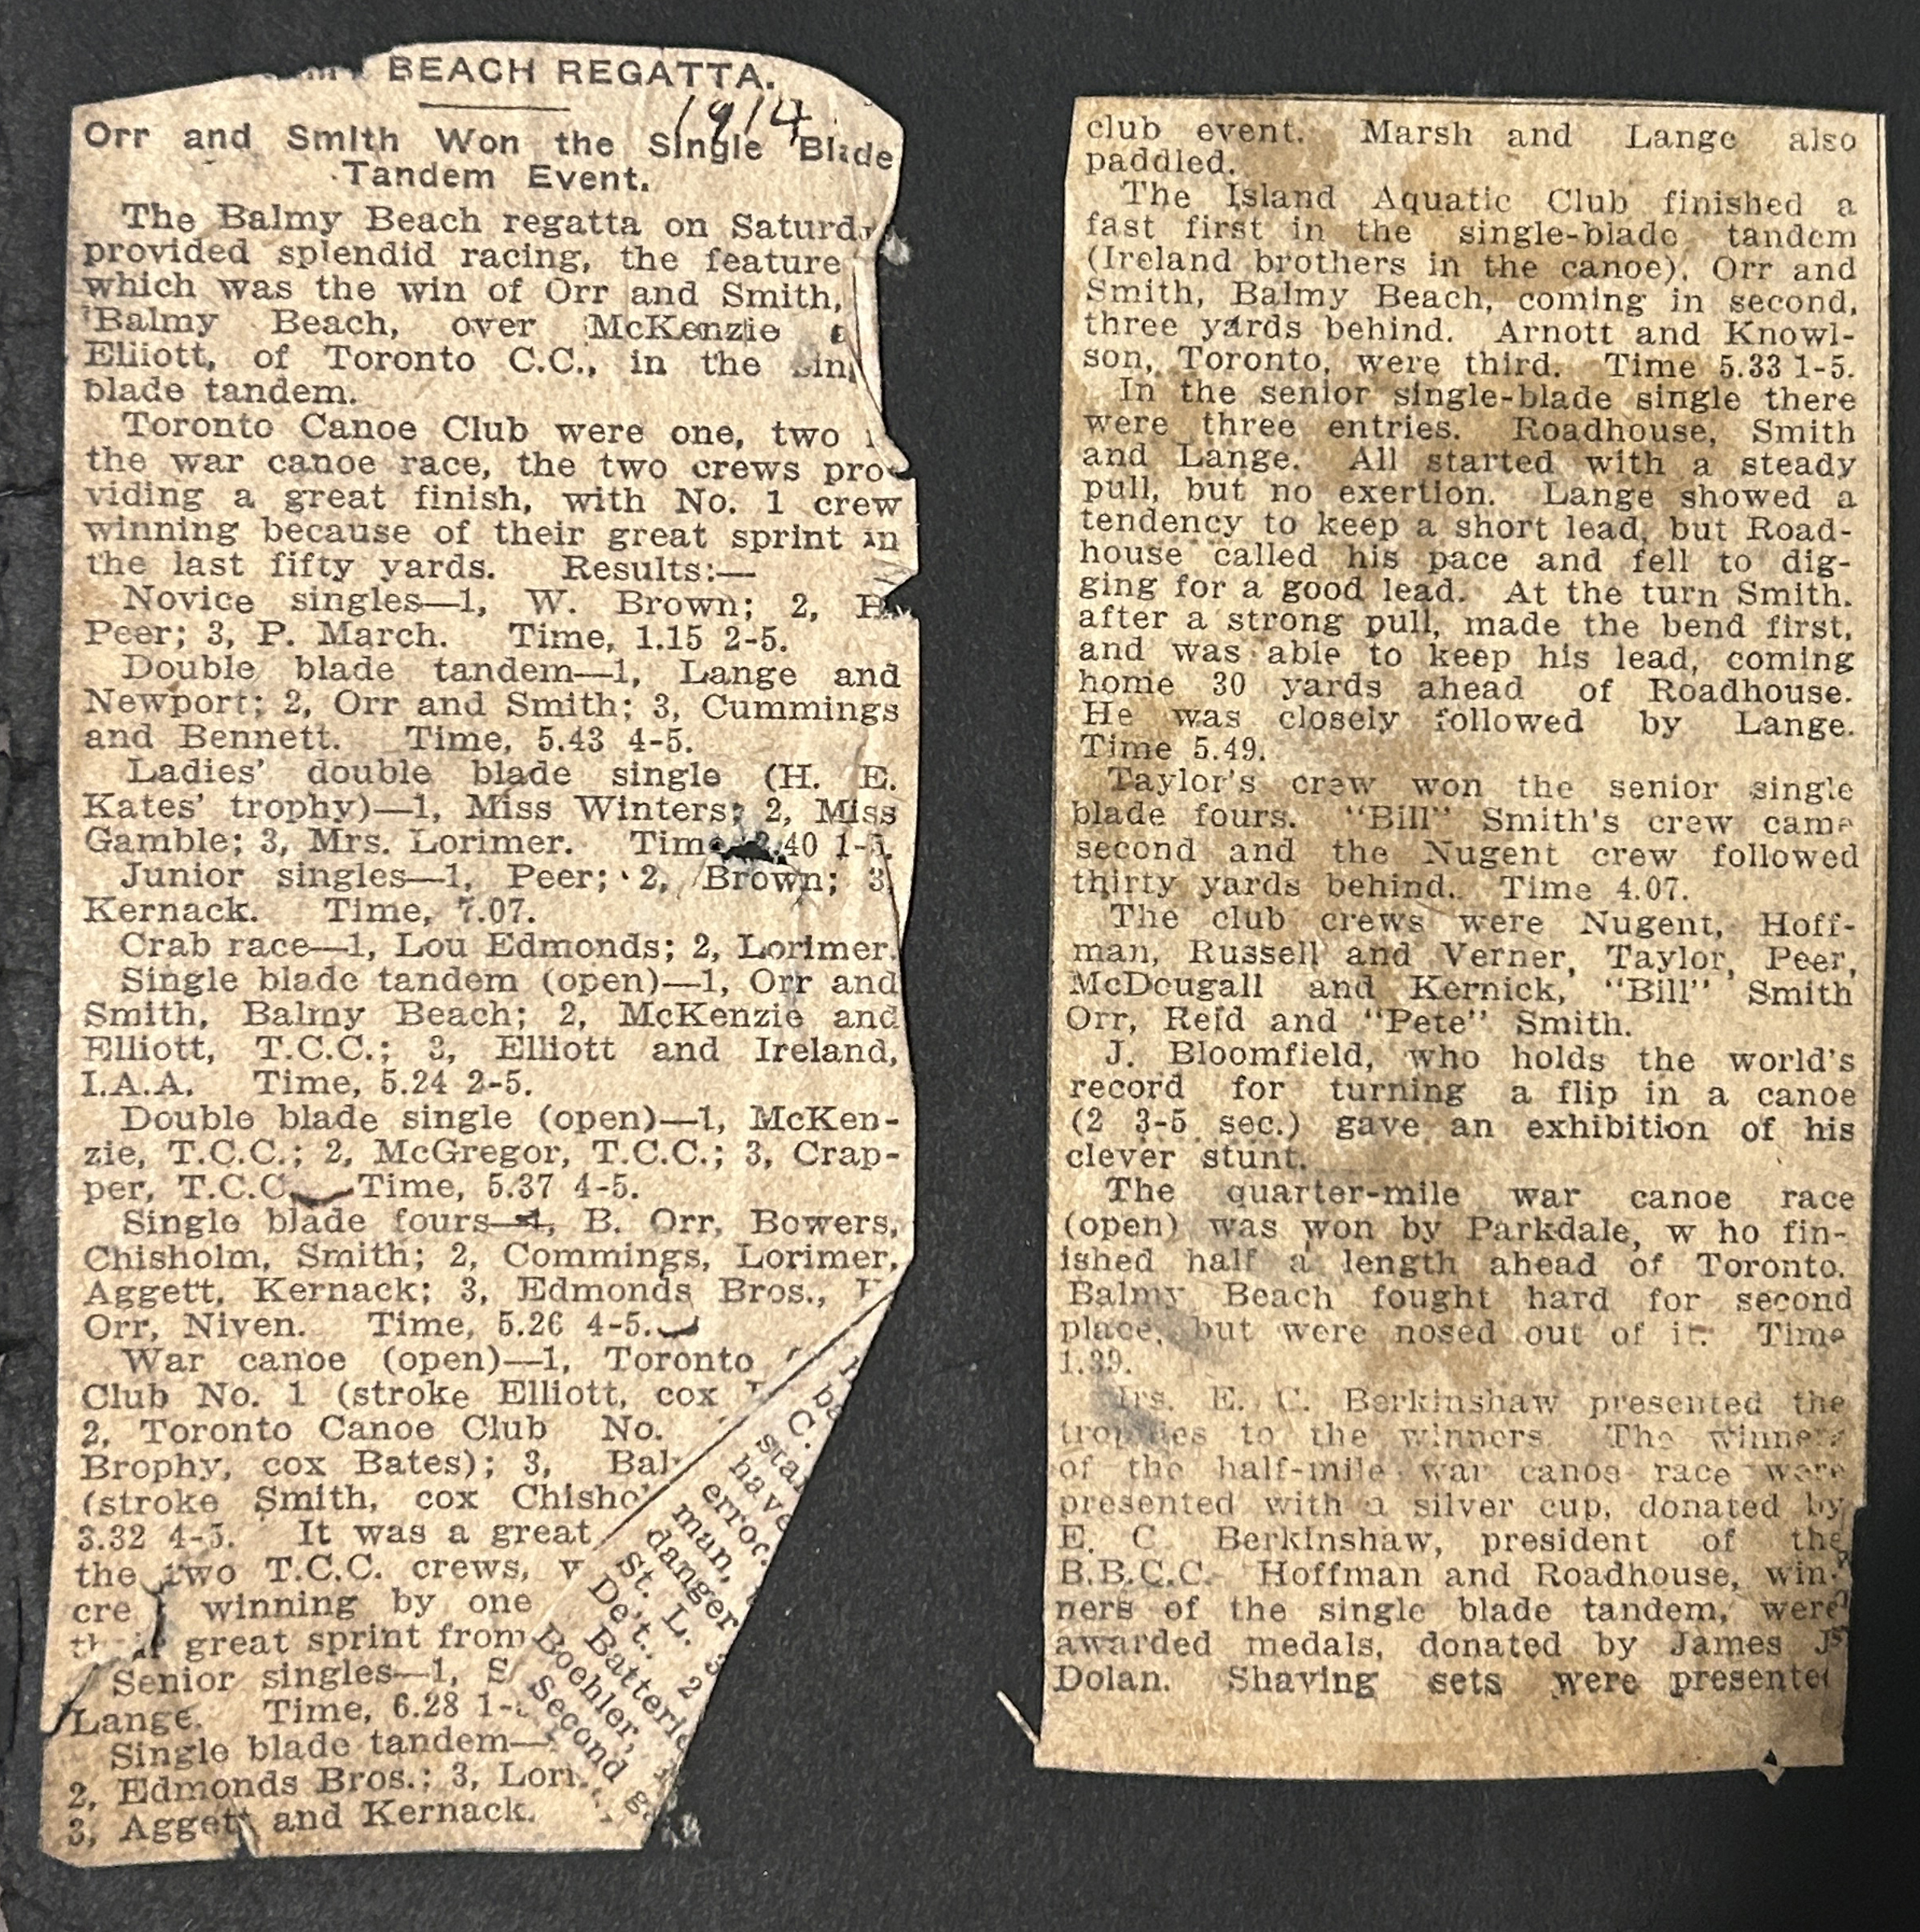 BEACH REGATTA.
1914
Orr and Smith Won the Single Blade
Tandem Event.
The Balmy Beach regatta on
provided splendid racing, the feature
which was the win of Orr and Smith,
Balmy Beach, over McKenzie
Elliott, of Toronto C.C., in the
blade tandem.
Toronto Canoe Club were one, two
the war canoe race, the two crews pro-
viding a great finish, with No. 1 crew
winning because of their great sprint in
the last fifty yards. Results:—
Novice singles—1, W. Brown; 2, H.
Peer; 3, P. March. Time, 1.15 2-5.
Double blade tandem—1, Lange and
Newport; 2, Orr and Smith; 3, Cummings
and Bennett. Time, 5.43 4-5.
Ladies' double blade single (H. E.
Kates' trophy)—1, Miss Winters; 2, Miss
Gamble; 3, Mrs. Lorimer. Time 2.40 1-5.
Junior singles—1, Peer; 2, Brown; 3,
Kernack. Time, 7.07.
Crab race—1, Lou Edmonds; 2, Lorimer.
Single blade tandem (open)—1, Orr and
Smith, Balmy Beach; 2, McKenzie and
Elliott, T.C.C.; 3, Elliott and Ireland,
I.A.A. Time, 5.24 2-5.
Double blade single (open)—1, McKen-
zie, T.C.C.; 2, McGregor, T.C.C.; 3, Crap-
per, T.C.C. Time, 5.37 4-5.
Single blade fours—1, B. Orr, Bowers,
Chisholm, Smith; 2, Commings, Lorimer,
Aggett, Kernack; 3, Edmonds Bros.,
Orr, Niven. Time, 5.26 4-5.
War canoe (open)—1, Toronto
Club No. 1 (stroke Elliott, cox
2, Toronto Canoe Club No.
Brophy, cox Bates); 3,
(stroke Smith, cox
3.32 4-5. It was a great
the two T.C.C. crews,
winning by one
great sprint from
Senior singles—1,
Lange. Time, 6.28
Single blade tandem—
2, Edmonds Bros.; 3,
3, Aggett and Kernack.
C.
have
man,
danger
St. L.
De't.
Boehler,
Second
club event. Marsh and Lange also
paddled.
The Island Aquatic Club finished a
fast first in the single-blade tandem
(Ireland brothers in the canoe), Orr and
Smith, Balmy Beach, coming in second,
three yards behind. Arnott and Knowl-
son, Toronto, were third. Time 5.33 1-5.
In the senior single-blade single there
were three entries. Roadhouse, Smith
and Lange. All started with a steady
pull, but no exertion. Lange showed a
tendency to keep a short lead, but Road-
house called his pace and fell to dig-
ging for a good lead. At the turn Smith.
after a strong pull, made the bend first,
and was able to keep his lead, coming
home 30 yards ahead of Roadhouse.
He was closely followed by Lange.
Time 5.49.
Taylor's crew won the senior single
blade fours. "Bill" Smith's crew came
second and the Nugent crew followed
thirty yards behind. Time 4.07.
The club crews were Nugent, Hoff-
man, Russell and Verner, Taylor, Peer,
McDougall and Kernick, "Bill" Smith
Orr, Reid and "Pete" Smith.
J. Bloomfield, who holds the world's
record for turning a flip in a canoe
(2 3-5 sec.) gave an exhibition of his
clever stunt.
The quarter-mile war canoe race
(open) was won by Parkdale, w ho fin-
ished half a length ahead of Toronto.
Balmy Beach fought hard for second
place, but were nosed out of it. Time
1.39.
Mrs. E. C. Berkinshaw presented the
trophies to the winners. The winners
of the half-mile war canoe race were
presented with a silver cup, donated by
E. C. Berkinshaw, president of the
B.B.C.C. Hoffman and Roadhouse, win-
ners of the single blade tandem, were
awarded medals, donated by James J.
Dolan. Shaving sets were presented